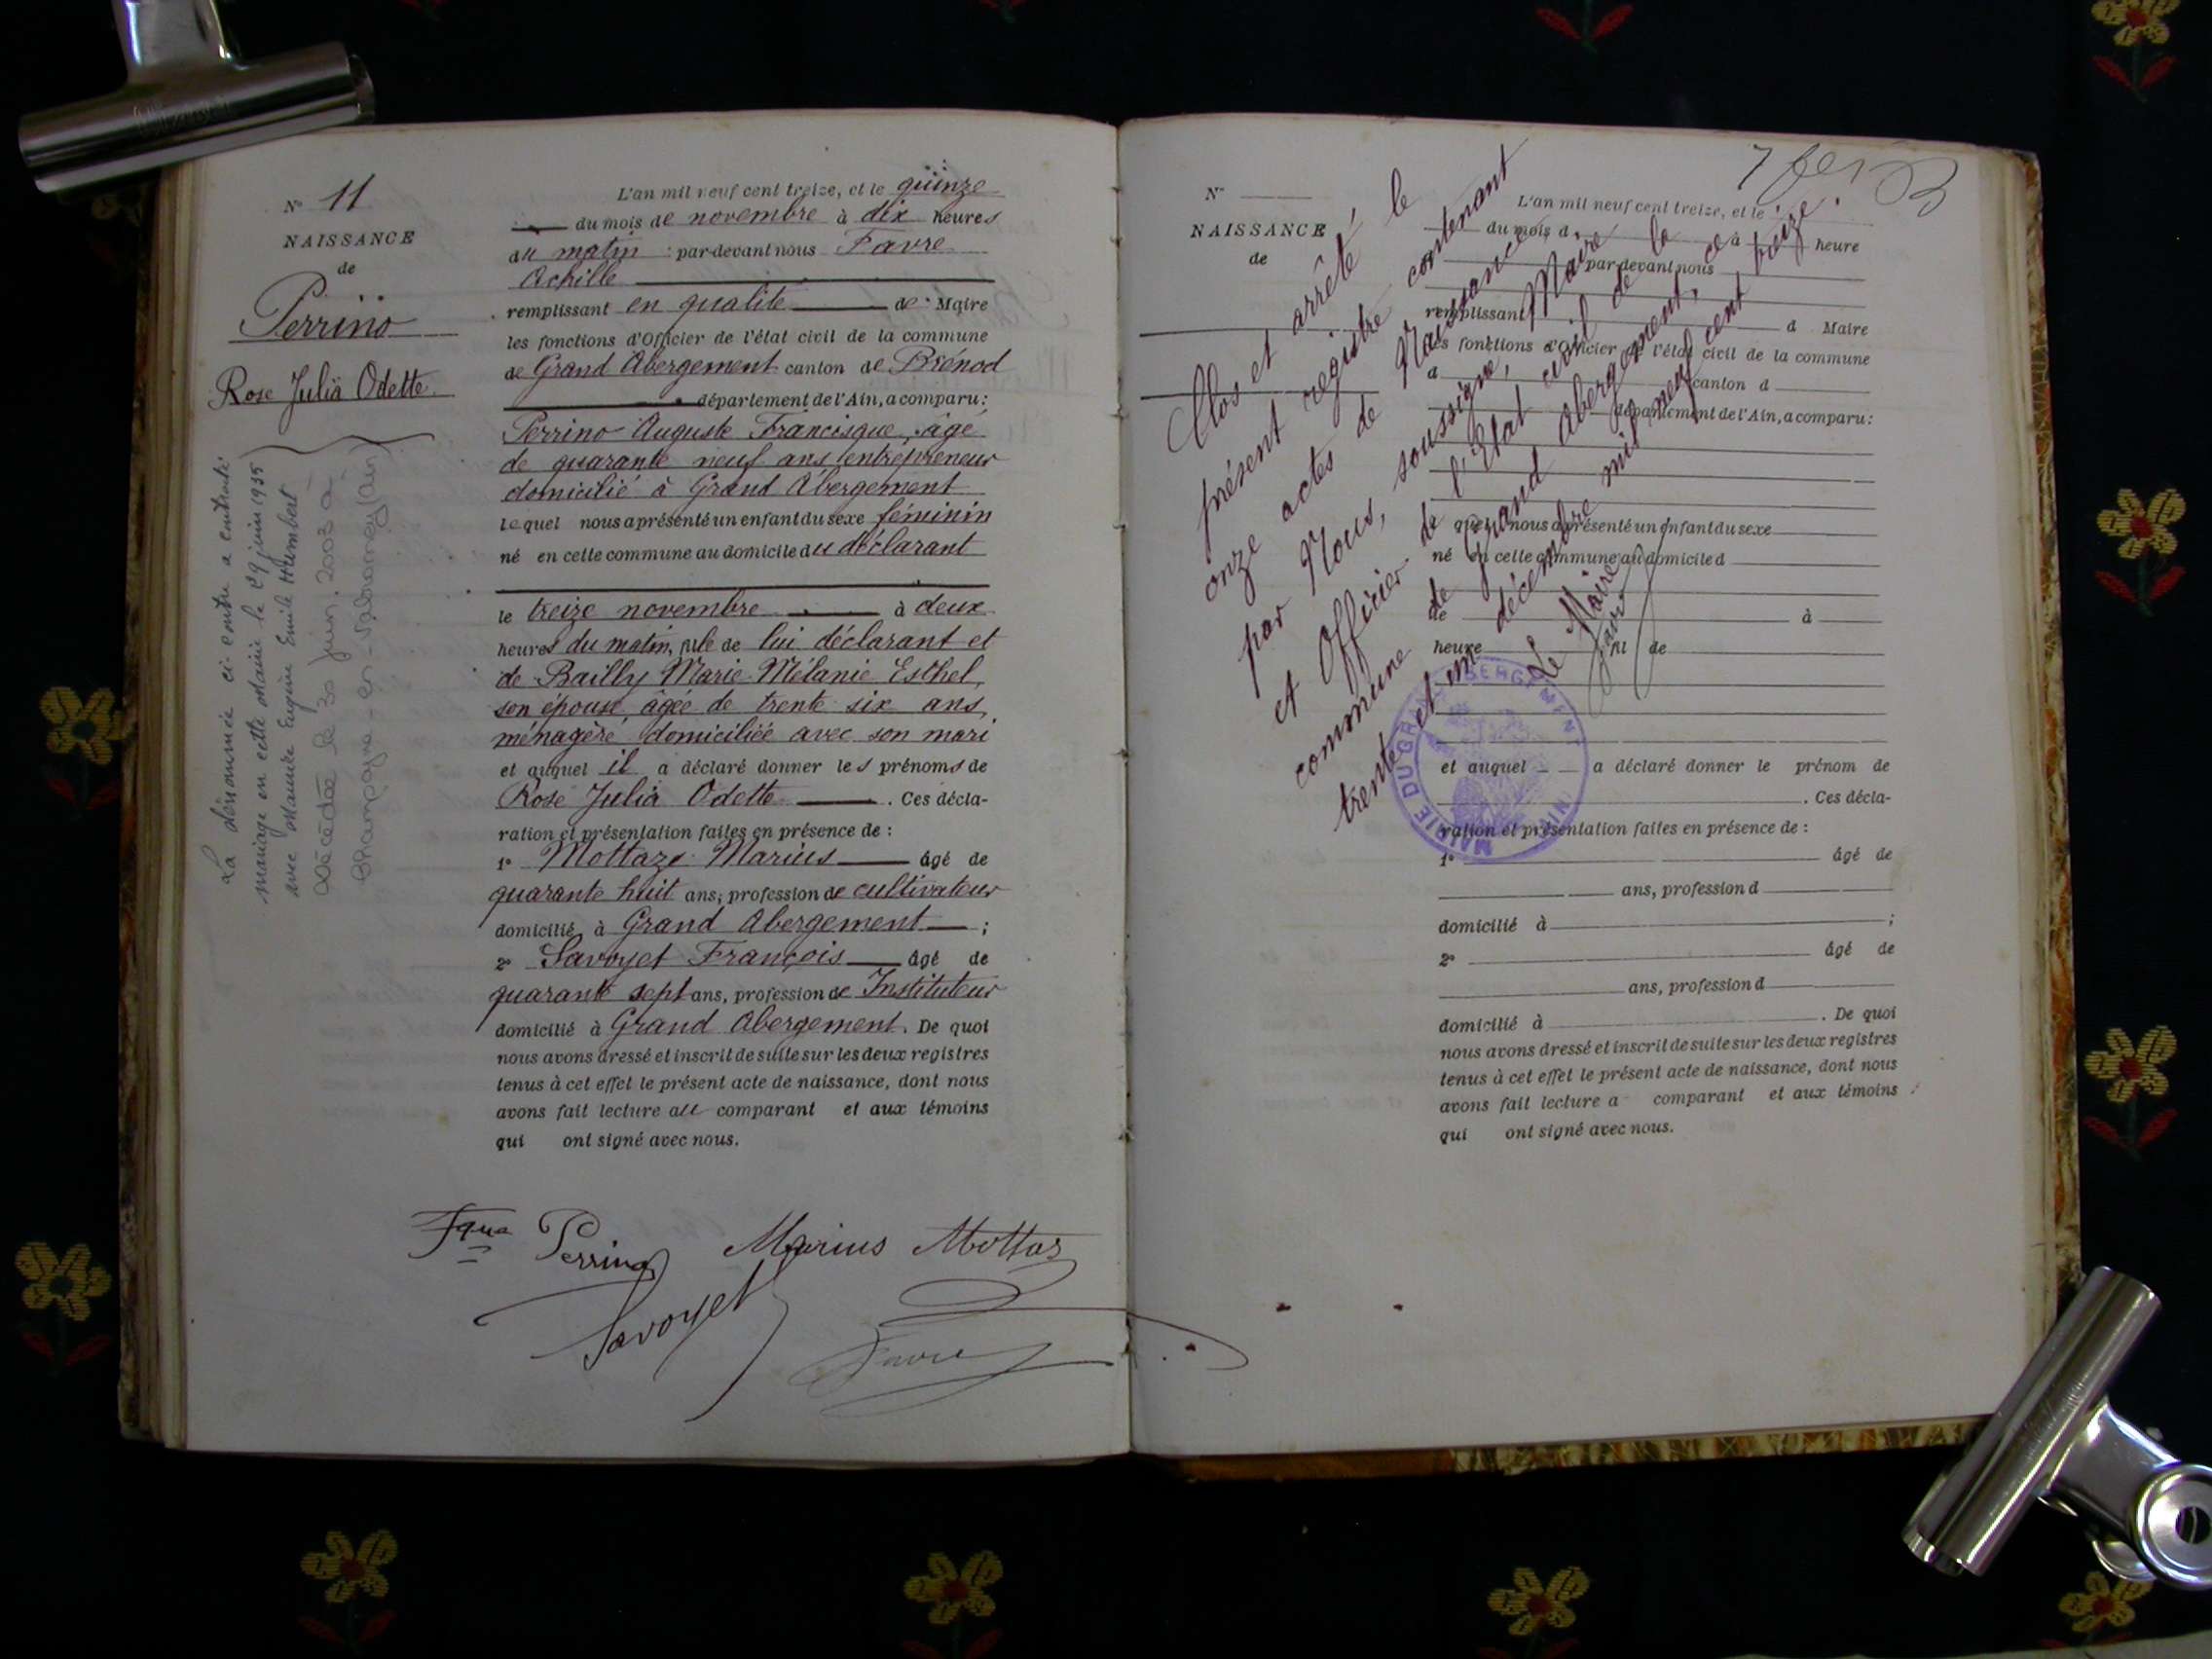 N° 11
NAISSANCE
de
Perrino
Rose Julia Odette
La dénommée ci-contre a contracté
mariage en cette mairie le 29 juin 1935
avec Maurice Eugène Emile Humbert
Décédée le 30 juin 2003 à
Champagne-en-Valromey (Ain)
L'an mil neuf cent treize, et le quinze
du mois de novembre à dix heures
du matin : par-devant nous Favre
Achille
remplissant en qualité de Maire
les fonctions d'Officier de l'état civil de la commune
de Grand Abergement canton de Brénod
département de l'Ain, a comparu :
Perrino Auguste Francisque, âgé
de quarante neuf ans, entrepreneur
domicilié à Grand Abergement
lequel nous a présenté un enfant du sexe féminin
né en cette commune au domicile du déclarant
le treize novembre à deux
heures du matin, fille de lui déclarant et
de Bailly Marie Mélanie Esthel,
son épouse, âgée de trente six ans,
ménagère, domiciliée avec son mari
et auquel il a déclaré donner les prénoms de
Rose Julia Odette. Ces décla-
ration et présentation faites en présence de :
1° Mottaze Marius âgé de
quarante huit ans, profession de cultivateur
domicilié à Grand Abergement ;
2° Savoyet François âgé de
quarante sept ans, profession de Instituteur
domicilié à Grand Abergement. De quoi
nous avons dressé et inscrit de suite sur les deux registres
tenus à cet effet le présent acte de naissance, dont nous
avons fait lecture au comparant et aux témoins
qui ont signé avec nous.
Fque Perrino Marius Mottaz
Savoyet
Favre
N°
NAISSANCE
de
L'an mil neuf cent treize, et le
du mois d à heure
par-devant nous
remplissant d Maire
les fonctions d'Officier de l'état civil de la commune
d canton d
département de l'Ain, a comparu :
quel nous a présenté un enfant du sexe
né en cette commune au domicile d
de à
heure fil de
et auquel a déclaré donner le prénom de
. Ces décla-
ration et présentation faites en présence de :
1° âgé de
ans, profession d
domicilié à ;
2° âgé de
ans, profession d
domicilié à . De quoi
nous avons dressé et inscrit de suite sur les deux registres
tenus à cet effet le présent acte de naissance, dont nous
avons fait lecture a comparant et aux témoins
qui ont signé avec nous.
Clos et arrêté le
présent registre contenant
onze actes de Naissance,
par Nous, soussigné, Maire
et Officier de l'Etat civil de la
commune de Grand Abergement, ce
trente et un décembre mil neuf cent treize.
Le Maire
Favre
MAIRIE DU GRAND ABERGEMENT
AIN